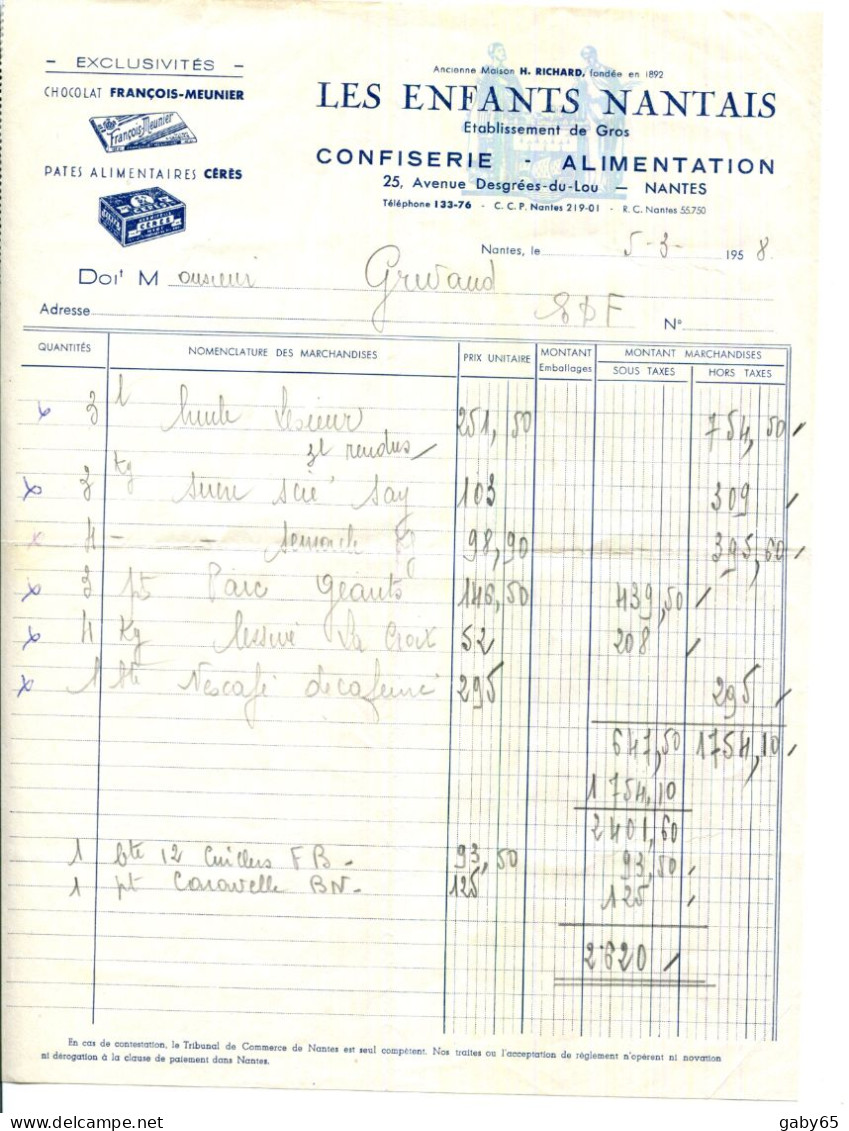 - EXCLUSIVITÉS -
CHOCOLAT FRANÇOIS-MEUNIER
François-Meunier
PATES ALIMENTAIRES CÉRÈS
CÉRÈS
Ancienne Maison H. RICHARD, fondée en 1892
LES ENFANTS NANTAIS
Etablissement de Gros
CONFISERIE - ALIMENTATION
25, Avenue Desgrées-du-Lou — NANTES
Téléphone 133-76 - C. C. P. Nantes 219-01 - R. C. Nantes 55.750
Nantes, le 5-3- 1958.
Doit Monsieur
Adresse N°
QUANTITÉS NOMENCLATURE DES MARCHANDISES PRIX UNITAIRE MONTANT Emballages MONTANT MARCHANDISES
SOUS TAXES HORS TAXES
x 3 l huile Lesieur 251,50 754,50
3l rendus
x 3 Kg sucre scié Say 103 309
x 4 - - semoule 98,90 395,60
x 3 pt Parc Géants 146,50 439,50
x 4 Kg lessive La Croix 52 208
x 1 bte Nescafé décafeiné 295 295
647,50 1754,10
1754,10
2401,60
1 bte 12 Cuillers FB - 93,50 93,50
1 pt Caravelle BN - 125 125
2620
En cas de contestation, le Tribunal de Commerce de Nantes est seul compétent. Nos traites ou l'acceptation de règlement n'opèrent ni novation
ni dérogation à la clause de paiement dans Nantes.
gaby65